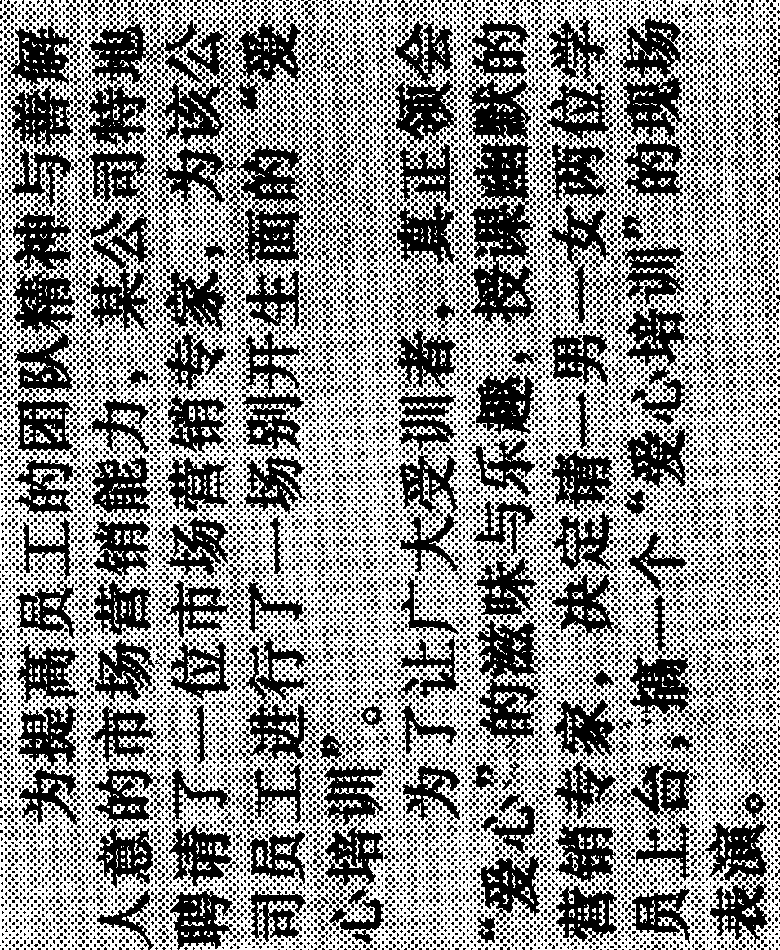 为提高员工的团队精神与善解
人意的市场营销能力，某公司特地
聘请了一位市场营销专家，为该公
司员工进行了一场别开生面的“爱
心培训”。
为了让广大受训者，真正领会
“爱心”的滋味与乐趣，授课幽默的
营销专家，决定请一男一女两位学
员上台，搞一个“爱心培训”的现场
表演。